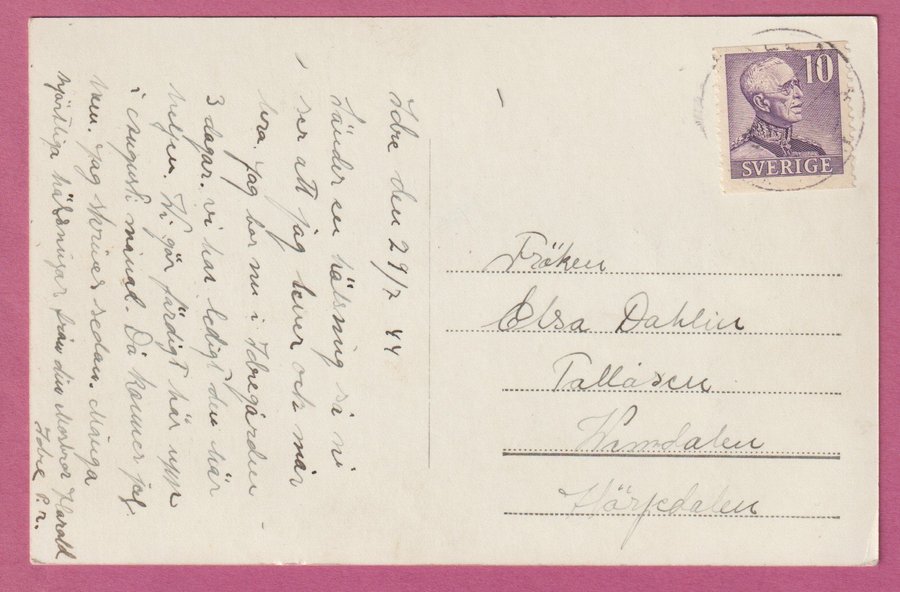 Idre den 29/7 44
Sänder en hälsning så ni
ser att jag lever och mår
bra. Jag bor nu i Idregården
3 dagar. vi har ledigt den här
helgen. Vi går färdigt här uppe
i Augusti månad. Då kommer jag
hem. Jag skriver sedan. Många
hjärtliga hälsningar från din Morbror Harald
Idre P.r.
10
SVERIGE
Fröken
Elsa Dahlin
Tallåsen
Vemdalen
Härjedalen